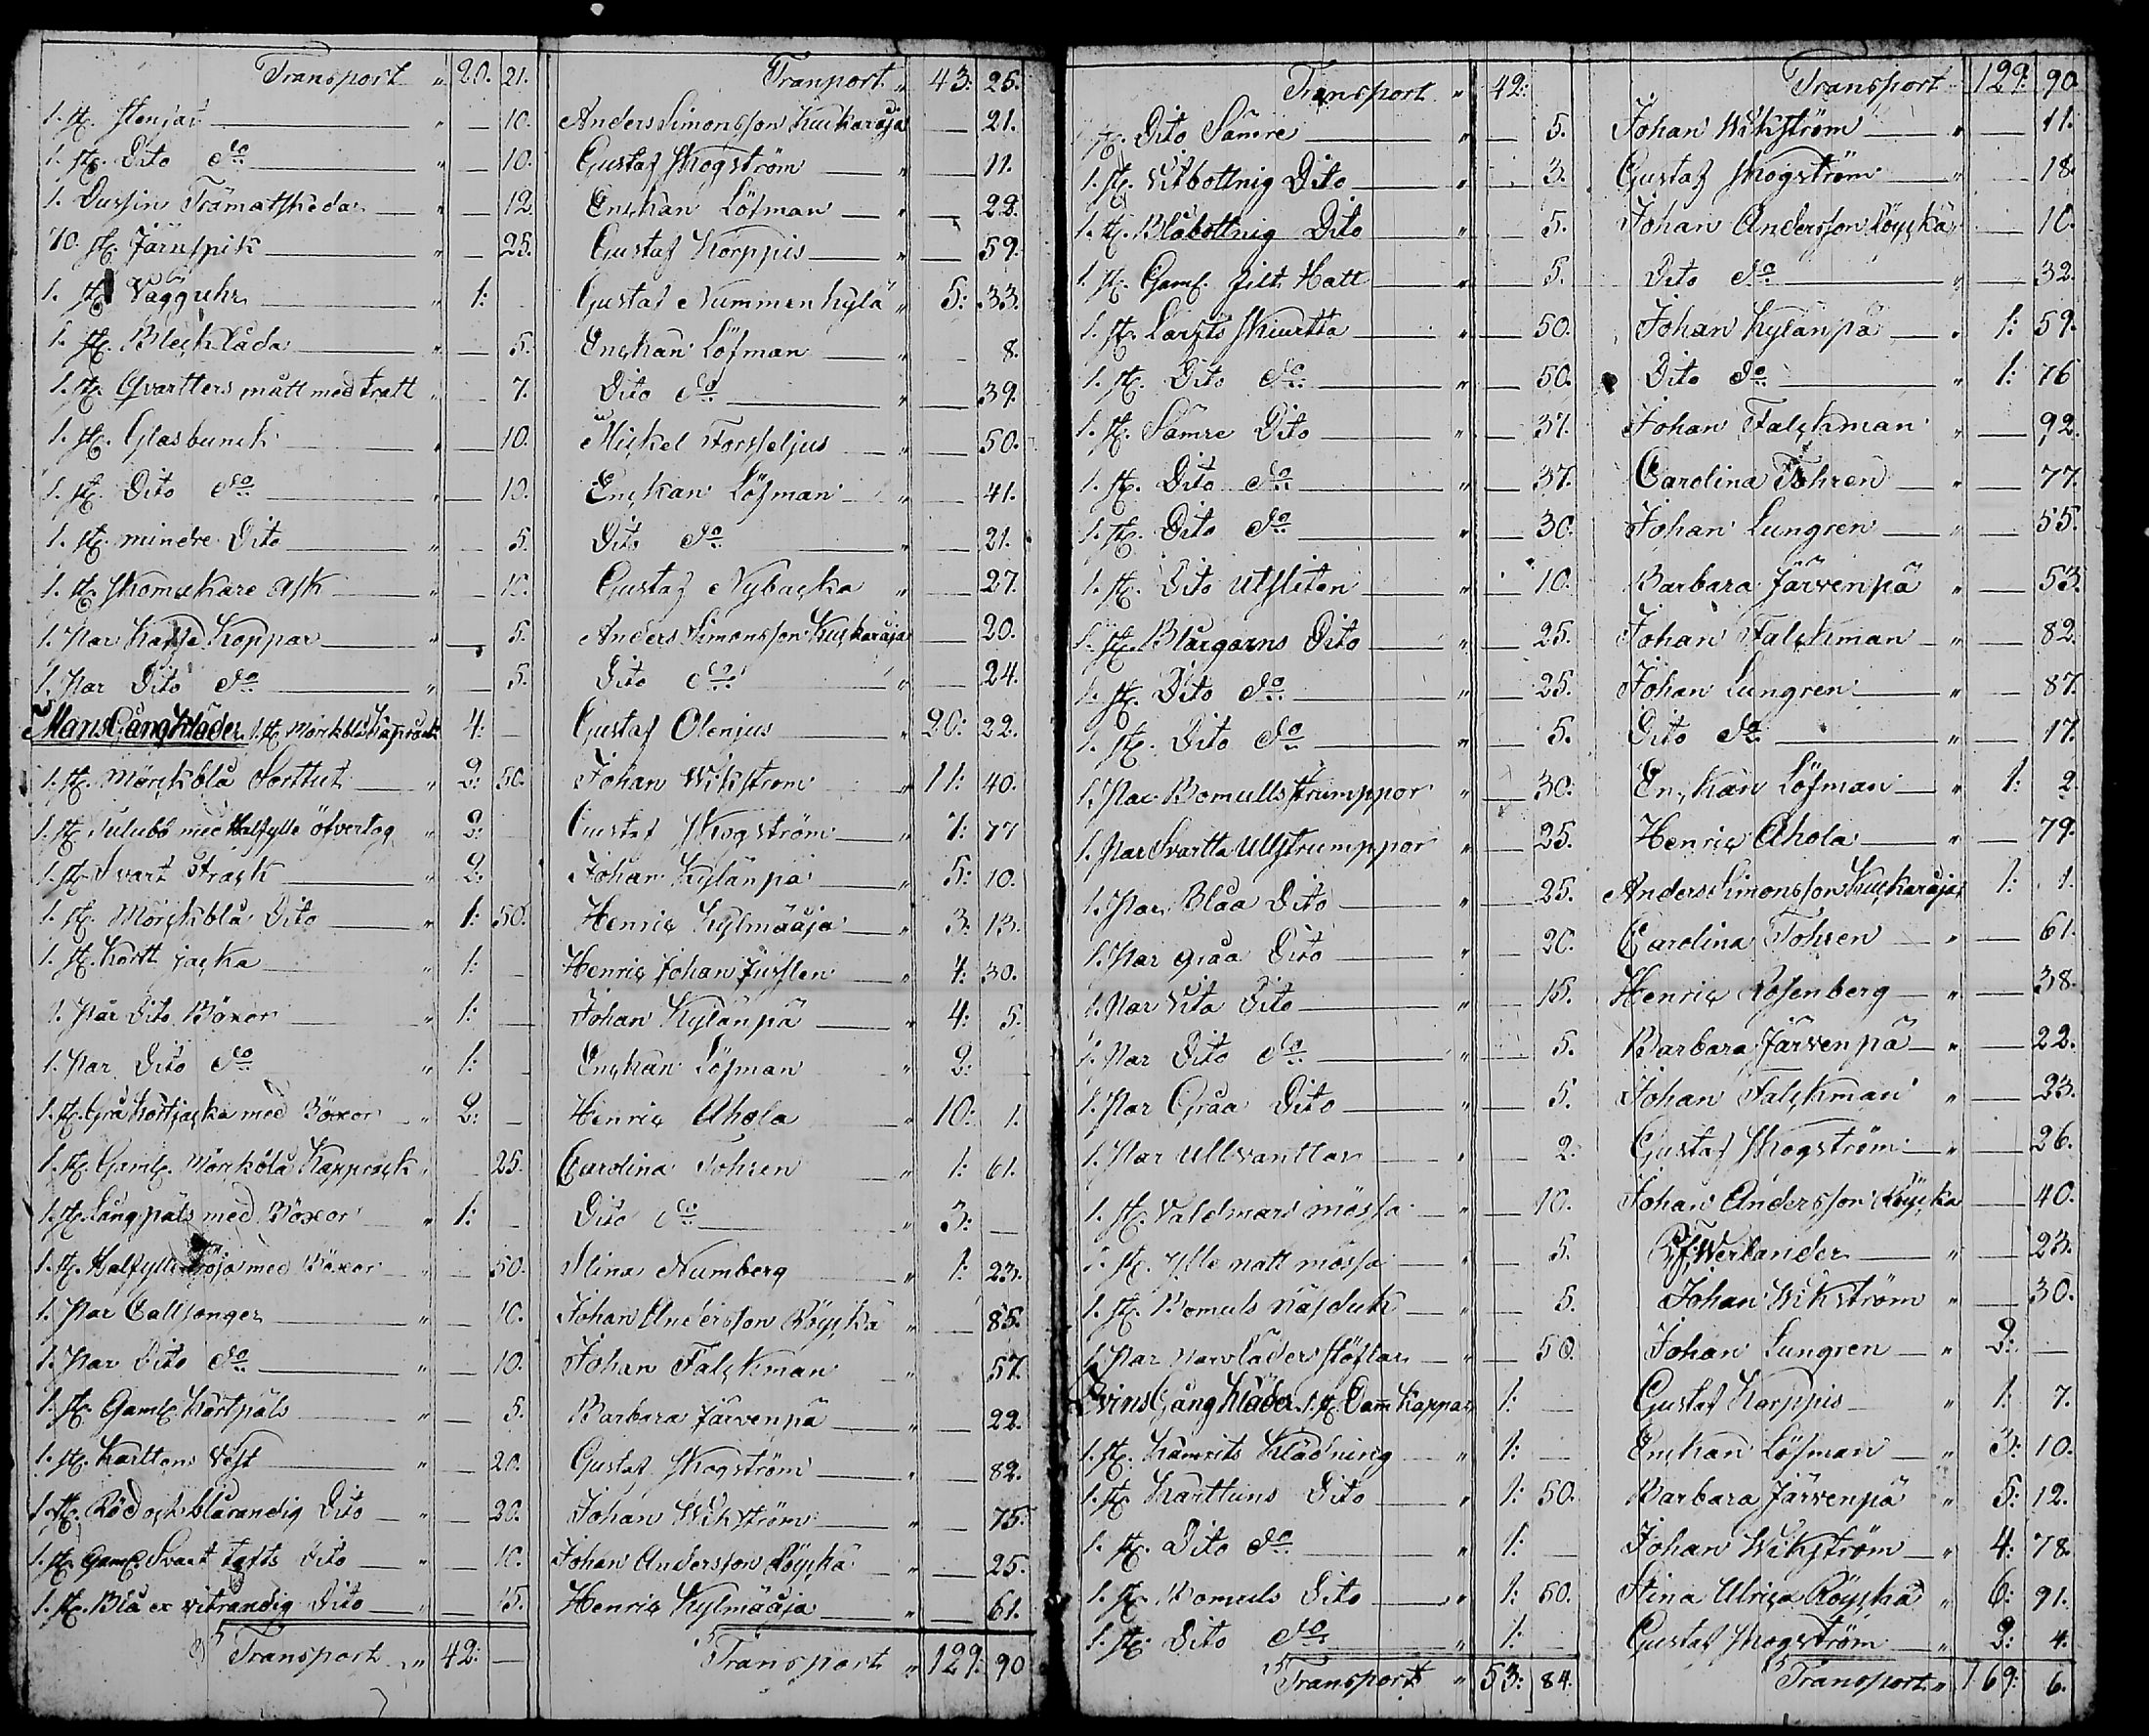 Transport " 20. 21. Tranport " 43: 25.
1. st. Stenjas " — 10. Anders Simonsson Kuckaråja — 21.
1. st. Dito do " — 10. Gustaf Skogström " — 11.
1. Dussin Trämatskedar " — 12. Enckan Löfman " — 22.
70. st. Järnspik " — 25. Gustaf Korppis " — 59.
1. st. Vägguhr " 1: Gustaf Nummenkylä " 5: 33.
1. st. Bleck låda " — 5. Enckan Löfman " — 8.
1. st. Qvartters mått med tratt " — 7. Dito do " — 39.
1. st. Glasburck " — 10. Mickel Forsseljus " — 50.
1. st. Dito do " — 10. Enckan Löfman " — 41.
1. st. mindre Dito " — 5. Dito do " — 21.
1. st. Skomakare ask " — 10. Gustaf Nybacka " — 27.
1. Par Kaffe Koppar " — 5. Anders Simonsson Kuckaråja — 20.
1. Par Dito do " — 5. Dito do " — 24.
Mans Gång Kläder 1. st. Mörkblå Kaprock 4: — Gustaf Olenjus " 20: 22.
1. st. Mörckblå Sorttut " 2: 50. Johan Wikström " 11: 40.
1. st. Tulubb med Halfylle öfvertog " 2: Gustaf Skogström " 7: 77
1. st. Svart Frack " 2: Johan Kylänpä " 5: 10.
1. st. Mörckblå Dito " 1: 50. Henric Kylmääja " 3: 13.
1. st. Kortt jacka " 1: — Henric Johan Jusslen " 7: 30.
1. Par Dito Böxor " 1: — Johan Kylänpä " 4: 5.
1. Par Dito do " 1: — Enckan Löfman " 2:
1. st. Grå Kortjacka med Böxor " 2: — Henric Ahola " 10: 1.
1. st. Gaml. Mörckblå Kapprock " 25. Carolina Tohren " 1: 61.
1. st. Lång päls med Böxor " 1: — Dito do " 3: —
1. st. Halfylle tröja med Böxor " — 50. Stina Numberg " 1: 23.
1. Par Callsonger " — 10. Johan Andersson Röyckä " — 85.
1. Par Dito do " — 10. Johan Falckman " 57.
1. st. Gaml. Kortpäls " — 5. Barbara Järvenpä " — 22.
1. st. Karttons Väst " — 20. Gustaf Skogström " — 82.
1. st. Röd och blårandig Dito " — 20. Johan Wikström " — 75.
1. st. Gaml. Svart tafts Dito " — 10. Johan Andersson Röyckä " — 25.
1. st. Blå ex vitrandig Dito " — 15. Henric Kylmääja " — 61.
Transport " 42: — Transport " 129: 90
Transport " 42: Transport 129: 90
1. st. Dito Sämre " — 5. Johan Wikström " — 11.
1. st. Vitbottnig Dito " 3. Gustaf Skogström " — 18.
1. st. Blåbottnig Dito " — 5. Johan Andersson Röyckä — 10.
1. st. Gaml. filt Hatt " — 5. Dito do " — 32.
1. st. Larfts Skiurtta " — 50. Johan Kylänpä " 1: 59.
1. st. Dito do " — 50. Dito do " 1: 76
1. st. Sämre Dito " — 37. Johan Falckman " — 92.
1. st. Dito do " — 37. Carolina Tohren " — 77.
1. st. Dito do " — 30. Johan Lungren " — 55.
1. st. Dito utsliten " — 10. Barbara Järvenpä " — 53.
1. st. Blårgarns Dito " — 25. Johan Falckman " — 82.
1. st. Dito do " — 25. Johan Lungren " — 87.
1. st. Dito do " — 5. Dito do " — 17.
1. Par Bomulls strumppor " — 30: Enckan Löfman " 1: 2.
1. Par Svartta Ullstrumppor " — 25. Henric Ahola " — 79.
1. Par Blåa Dito " — 25. Anders Simonsson Kuckaråja 1: 1.
1. Par gråa Dito " — 20. Carolina Tohren " — 61.
1. Par Vita Dito " — 15. Henric Rosenberg " — 38.
1. Par Dito do " — 5. Barbara Järvenpä " — 22.
1. Par Gråa Dito " — 5. Johan Falckman " — 23.
1. Par Ullvanttar " — 2: Gustaf Skogström " — 26.
1. st. Valdmars mössa " — 10. Johan Andersson Röyckä — 40.
1. st. Ylle natt mössa " 5. Werlander " — 23.
1. st. Bomuls näsduk " — 5. Johan Wikström " — 30.
1. Par Narvläder stöflar " — 50. Johan Lungren " 3: —
Qvins Gång Kläder 1. st. Dam Kappa 1: — Gustaf Karppis " 1: 7.
1. st. Kamrits Klädning " 1: — Enckan Löfman " 3: 10.
1. st. Karttuns Dito " 1: 50. Barbara Järvenpä " 5: 12.
1. st. Dito do " 1: — Johan Wikström " 4: 78.
1. st. Bomuls Dito " 1: 50. Stina Ulrica Röyckä " 6: 91.
1. st. Dito do " 1: Gustaf Skogström " 3: 4.
Transport " 53: 84. Transport " 169: 6.